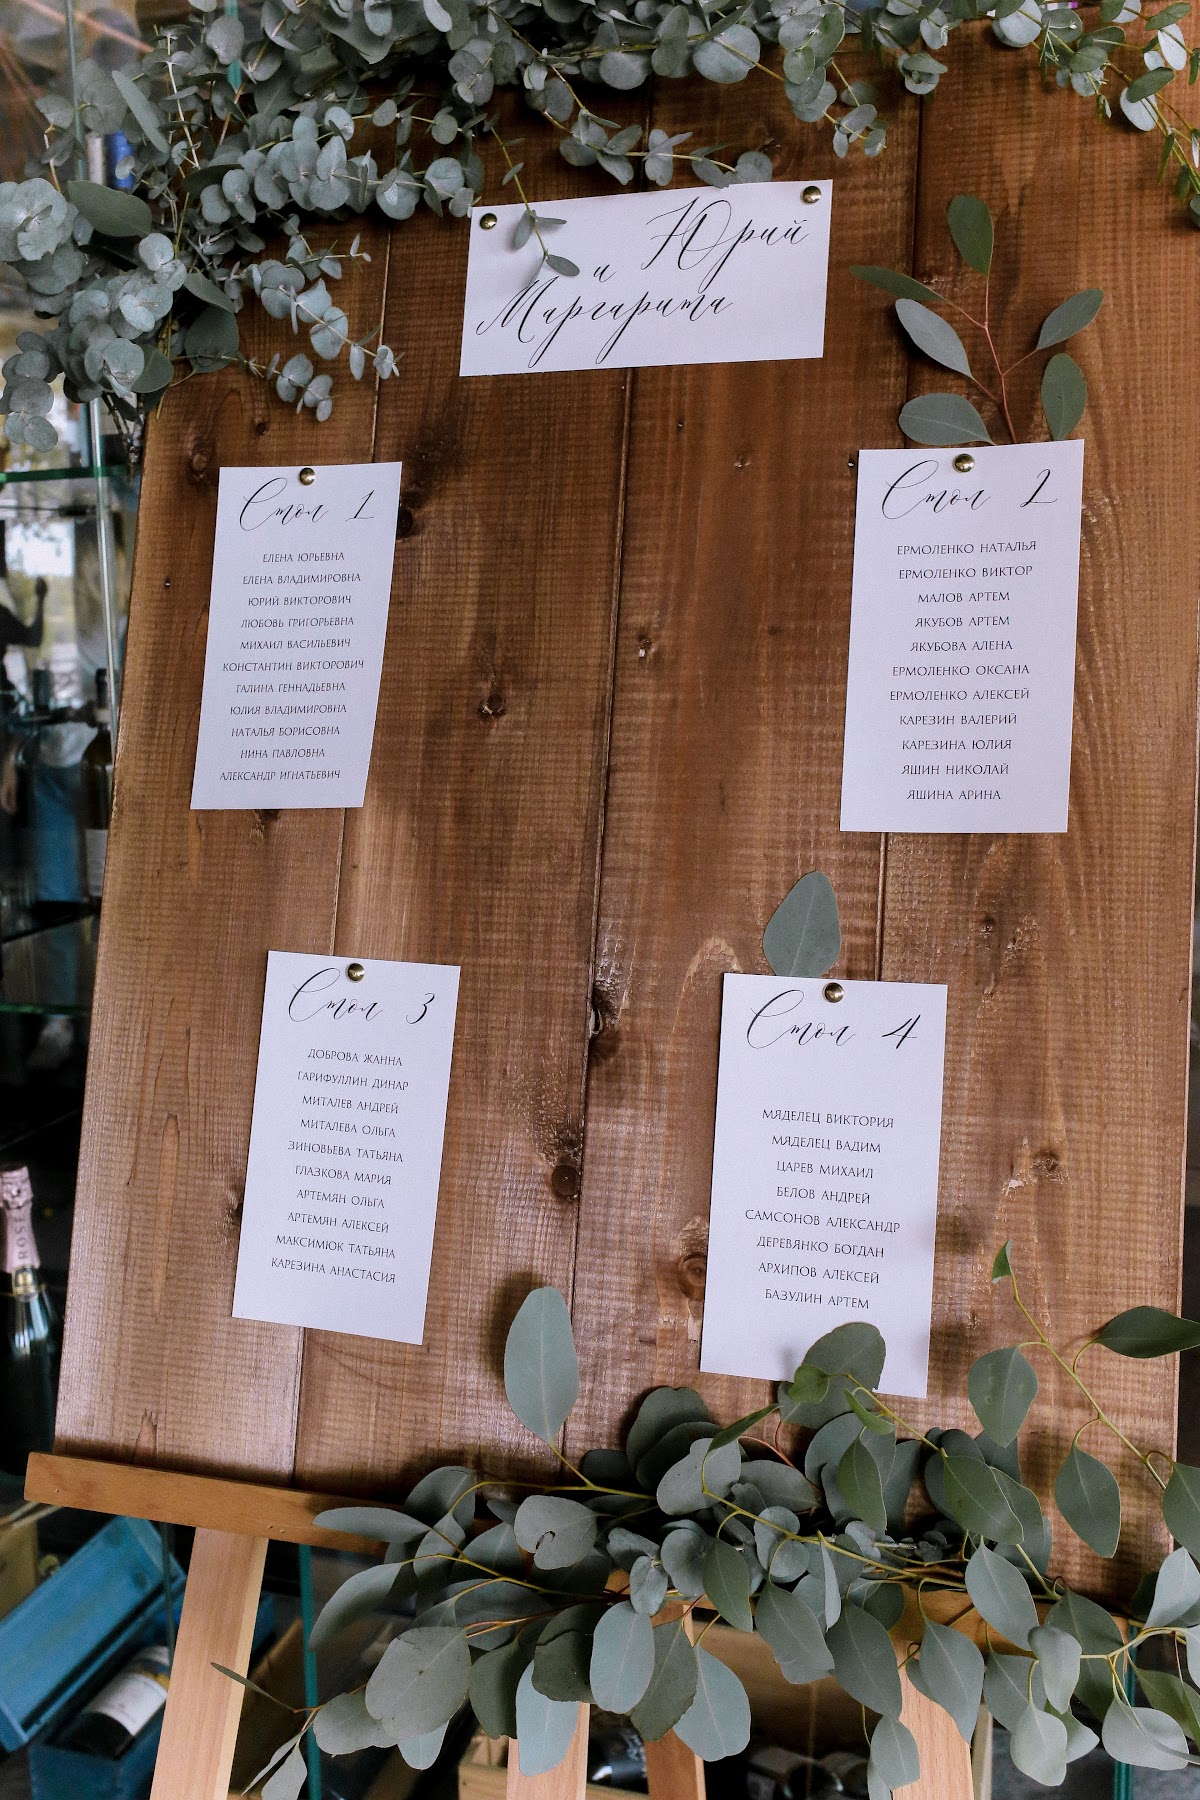 Юрий
и
Маргарита
Стол 1
ЕЛЕНА ЮРЬЕВНА
ЕЛЕНА ВЛАДИМИРОВНА
ЮРИЙ ВИКТОРОВИЧ
ЛЮБОВЬ ГРИГОРЬЕВНА
МИХАИЛ ВАСИЛЬЕВИЧ
КОНСТАНТИН ВИКТОРОВИЧ
ГАЛИНА ГЕННАДЬЕВНА
ЮЛИЯ ВЛАДИМИРОВНА
НАТАЛЬЯ БОРИСОВНА
НИНА ПАВЛОВНА
АЛЕКСАНДР ИГНАТЬЕВИЧ
Стол 2
ЕРМОЛЕНКО НАТАЛЬЯ
ЕРМОЛЕНКО ВИКТОР
МАЛОВ АРТЕМ
ЯКУБОВ АРТЕМ
ЯКУБОВА АЛЕНА
ЕРМОЛЕНКО ОКСАНА
ЕРМОЛЕНКО АЛЕКСЕЙ
КАРЕЗИН ВАЛЕРИЙ
КАРЕЗИНА ЮЛИЯ
ЯШИН НИКОЛАЙ
ЯШИНА АРИНА
Стол 3
ДОБРОВА ЖАННА
ГАРИФУЛЛИН ДИНАР
МИТАЛЕВ АНДРЕЙ
МИТАЛЕВА ОЛЬГА
ЗИНОВЬЕВА ТАТЬЯНА
ГЛАЗКОВА МАРИЯ
АРТЕМЯН ОЛЬГА
АРТЕМЯН АЛЕКСЕЙ
МАКСИМЮК ТАТЬЯНА
КАРЕЗИНА АНАСТАСИЯ
Стол 4
МЯДЕЛЕЦ ВИКТОРИЯ
МЯДЕЛЕЦ ВАДИМ
ЦАРЕВ МИХАИЛ
БЕЛОВ АНДРЕЙ
САМСОНОВ АЛЕКСАНДР
ДЕРЕВЯНКО БОГДАН
АРХИПОВ АЛЕКСЕЙ
БАЗУЛИН АРТЕМ
ROSE